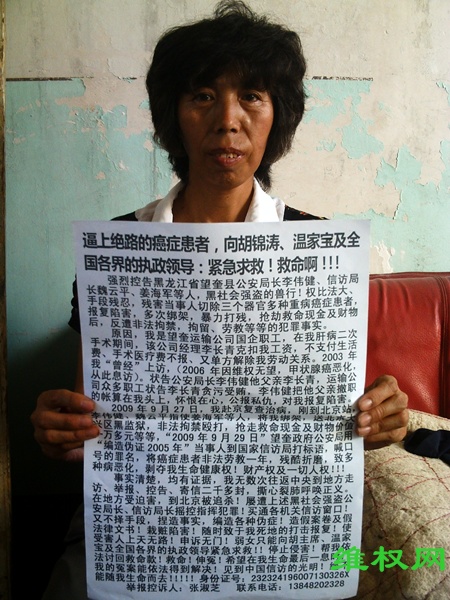 逼上绝路的癌症患者，向胡锦涛、温家宝及全
国各界的执政领导：紧急求救！救命啊！！！
强烈控告黑龙江省望奎县公安局长李伟健、信访局
长魏云平、姜海军等人，黑社会强盗的兽行！权比法大、
手段残忍，残害当事人切除三个器官多种重病癌症患者，
报复陷害，多次绑架，暴力打残，抢劫救命现金及财物
后，反遭非法拘禁，拘留、劳教等等的犯罪事实。
原因，我是望奎运输公司国企职工，在我肝病二次
手术期间，我公司经理李长青克扣我工资，不支付生活
费、手术医疗费不报、又单方解除我劳动关系。2003年
我“曾经”上访，（2006年因维权无望，甲状腺癌恶化，
从此息访）。状告公安局长李伟健他父亲李长青，运输公
司众多职工状告李长青贪污受贿，李伟健把他父亲搬职
的帐算在我头上，怀恨在心，公报私仇，对我报复陷害。
2009年9月27日，我赴京复查治病，刚到北京站，
李伟健、魏云平指使姜海军等人，将我绑架，
兴区黑监狱，非法拘禁殴打，抢走救命现金及财物价值
万多元等等，“2009年9月29日”望奎政府公安局用
“编造伪证2005年”当事人到国家信访局打标语，喊口
号的罪名，将癌症患者非法劳教一年，残酷折磨，致多
种病恶化，剥夺我生命健康权！财产权及一切人权！！！
事实清楚，均有证据，我无数次往返中央到地方走
访、举报、控告，寄信二千多封，撕心裂肺呼唤正义。
在地方受迫害，到北京被追杀！屡遭上述黑社会强盗公
安局长、信访局长摇控指挥犯罪！买通各机关信访窗口！
又不择手段，捏造事实，编造各种伪证！造假案卷及假
法律文书！栽赃陷害！随时致于我死地的打击报复！使
受害人上天无路！申诉无门！弱女只能向胡主席、温家
宝及全国各界的执政领导紧急求救！！停止侵害！帮我依
法讨回救命款！救命！伸冤！希望在我生命最后一息
我的冤案能依法得到解决！见到中国信访的光明！
能随我生命而去！！！！！身份证号：232324196007130326X
举报控诉人：张淑芝 电话：13848202328
维权网